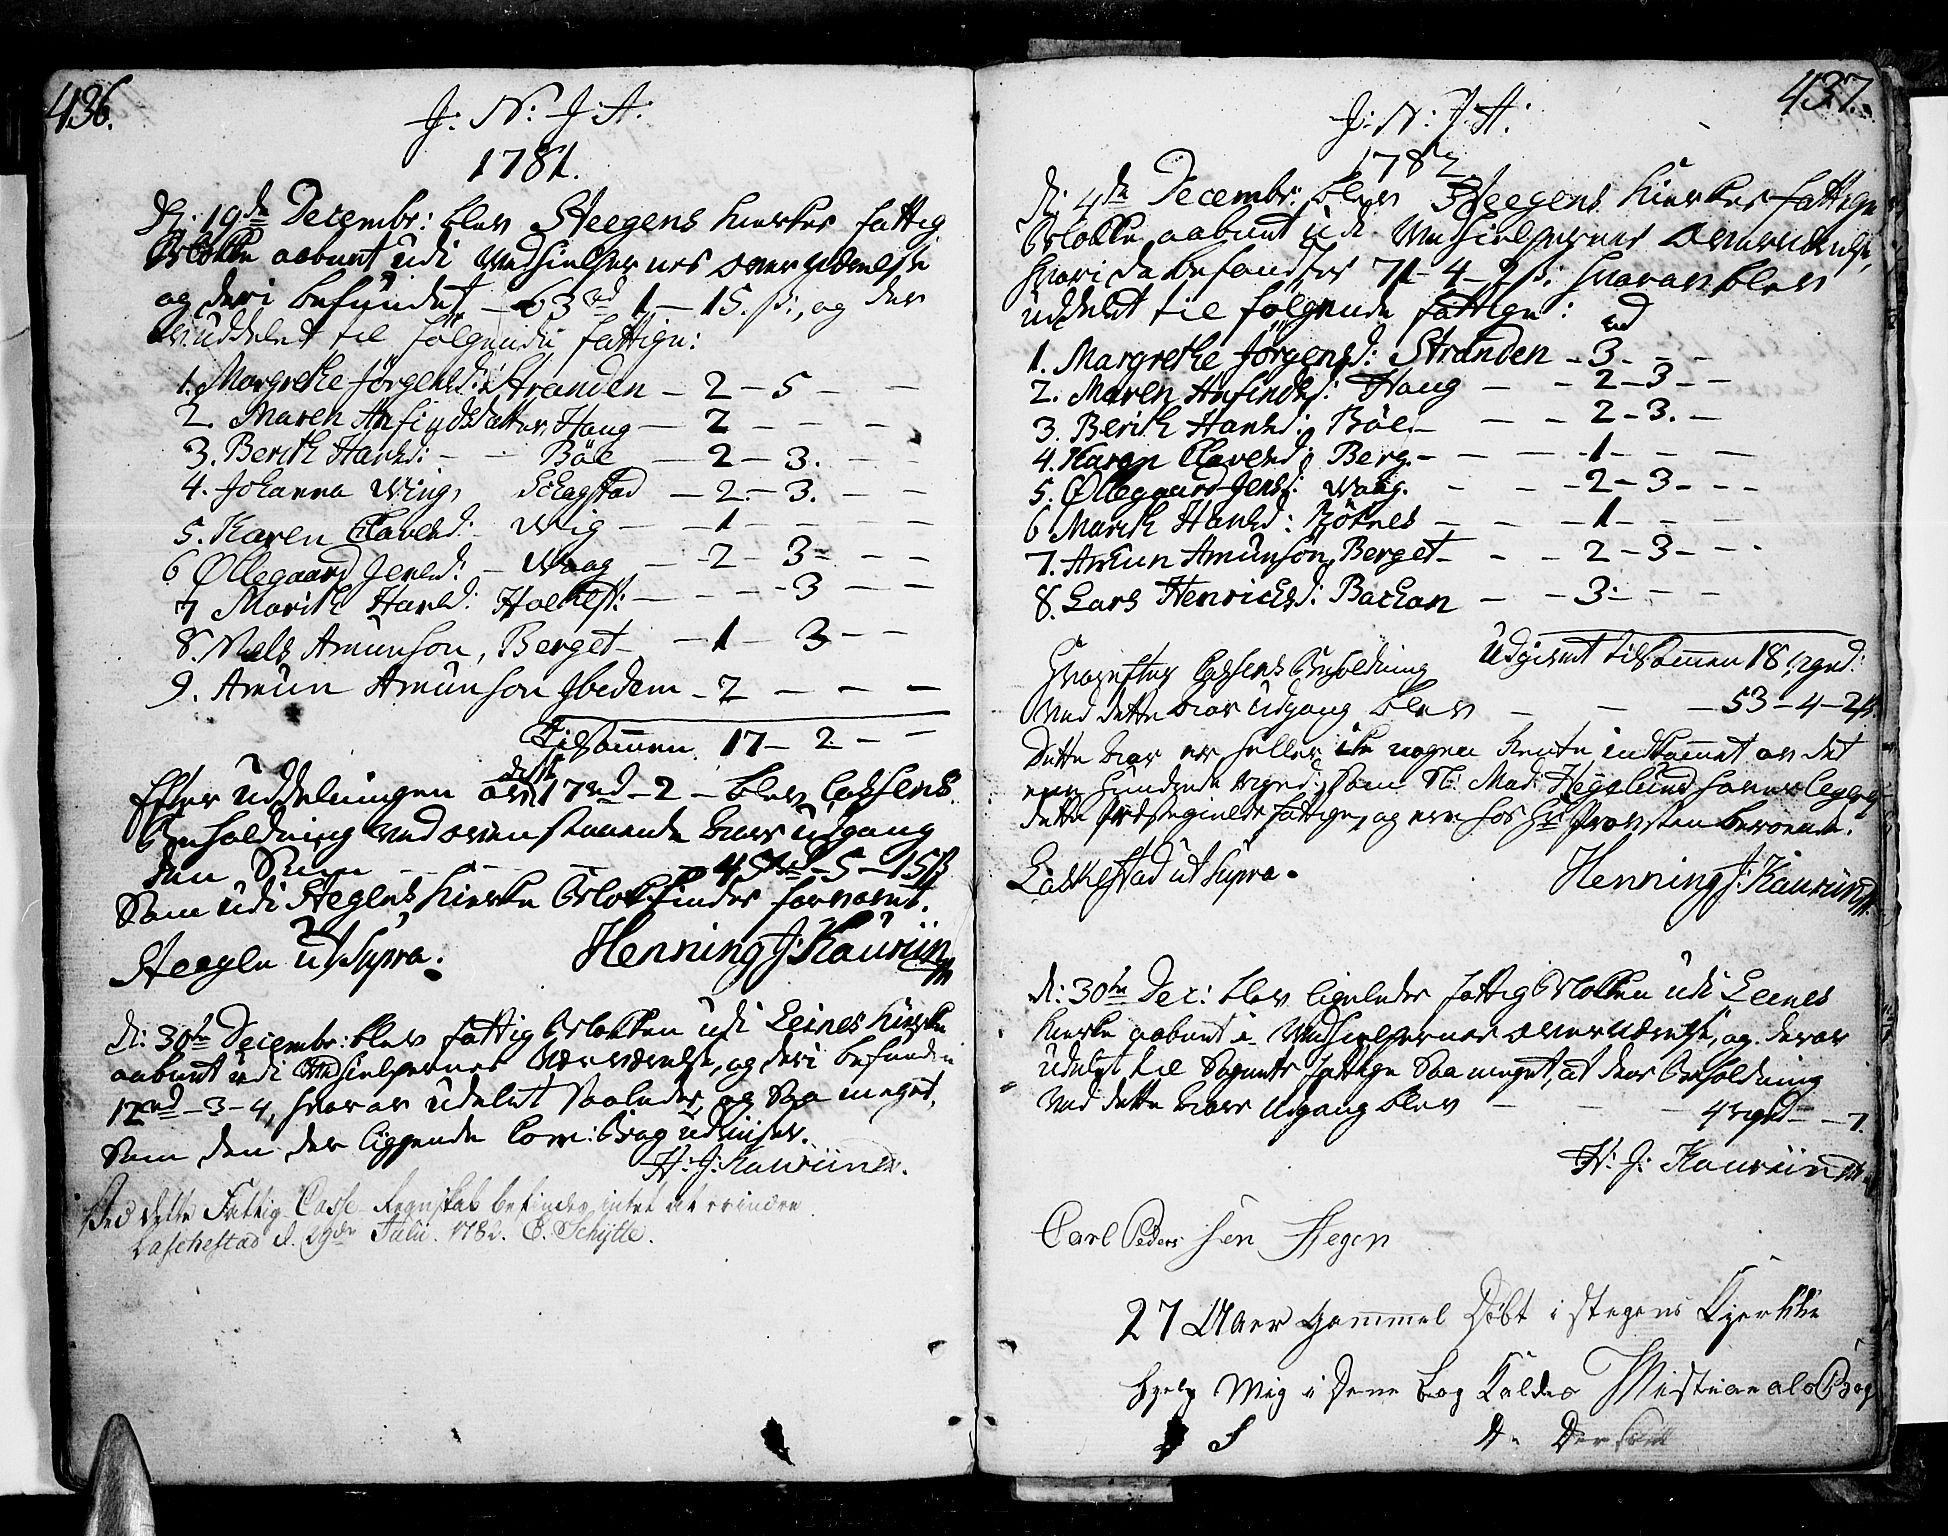 436.
J: N: J: A:
1781.
d: 19de Decembr: blev Steegens Kierkes fattig
Blokke aabnet udi Medhielpernes overværelse
og deri befundet 63 rd 1 – 15 ß:, og der
uddelet til følgende fattige:
1. Margrethe Jørgensd: Stranden – 2 – 5 – –
2. Maren Anfindsdatter, Haug – 2 – – –
3. Berith Hansd: – Böe – 2 – 3. – –
4. Johanna Wing, Schagstad – 2. – 3. – –
5. Karen Olavesd: Wig – 1 – – –
6 Øllegaard Jensd: – Waag – 2 – 3 – –
7 Marith Hansd: Holkest: – – – 3 – –
8. Niels Amunson, Berget – 1 – 3 – –
9. Amun Amunson ibedem – 2 – – –
Tilsammen 17 – 2 – –
Efter uddelningen av disse 17 rd – 2 – blev Cassens
Beholdning ved ovenstaaende Aars udgang
den Summ – – – 45 rd – 5 – 15 ß
Som udi Stegens Kierke Blok findes forvaret.
Steegen ut Supra. Henning J: Kaurin
d: 30te Decembr: blev fattig Blokken udi Leines Kierke
aabnet udi Medhielpernes Nærværelse, og deri befunden
12 rd – 3 – 4, hvorav udelet saaledes og saa meget,
Som den der liggende Bog udviser.
H: J: Kaurin
Ved dette Fattig Casse Regnskab befindes intet at erindre
Laschestad d. 29de Julii 1782. E. Schytte.
437.
J: N: J: A:
1782
d: 4de Decembr: blev Steegens Kierkes fattige
Blokke aabnet udi Medhielpernes overværelse,
hvori da befandtes 71 – 4 – 2 ß: hvorav blev
uddelet til følgende fattige: rd
1. Margrethe Jørgensd: Stranden – 3 – – –
2. Maren Anfindsd: Haug – – 2 – 3 – –
3. Berith Hansd: Böe – – – 2 – 3. – –
4. Karen Olavesd: Berg. – – – 1 – – –
5. Øllegaard Jensd: Waag. – – – 2 – 3 – –
6 Marith Hansd: Röttnes – – – 1 – – –
7. Amun Amunson, Berget – – – 2 – 3 – –
8. Lars Henricksd: Backan – – 3 – – –
Udgivet tilsammen 18 rd:
Hvorefter Cassens Beholdning
ved dette Aars udgang blev – – – 53 – 4 – 2 ß
Dette Aar er heller ikke nogen Rente indkommet av det
eene hundrede rd: som Sl: Mad: Hegelund haver legeret
dette Præstegields fattige, og ere hos Hr Provsten beroende.
Laskestad ut Supra. Henning J: Kaurin
d: 30te Dec: blev ligeledes fattig Blokken udi Leines
Kierke aabnet i Medhielpernes overværelse, og derav
udelet til Sognets fattige saa meget, at dens Beholdning
ved dette Aars udgang blev – – – 4 rd – – 7.
H: J: Kaurin
Carl Pedersen Stegen
27 Aaer Gammel Döbt i stegens Kjerkke
hjelp Mig i Dene bog Kaldes Bog
S d. Der